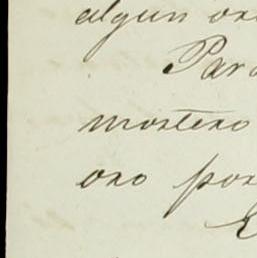 algun oro
Para
mortero
oro por